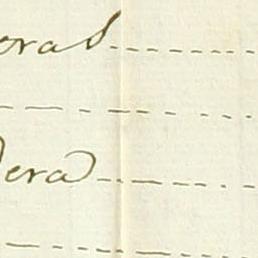 oras
era